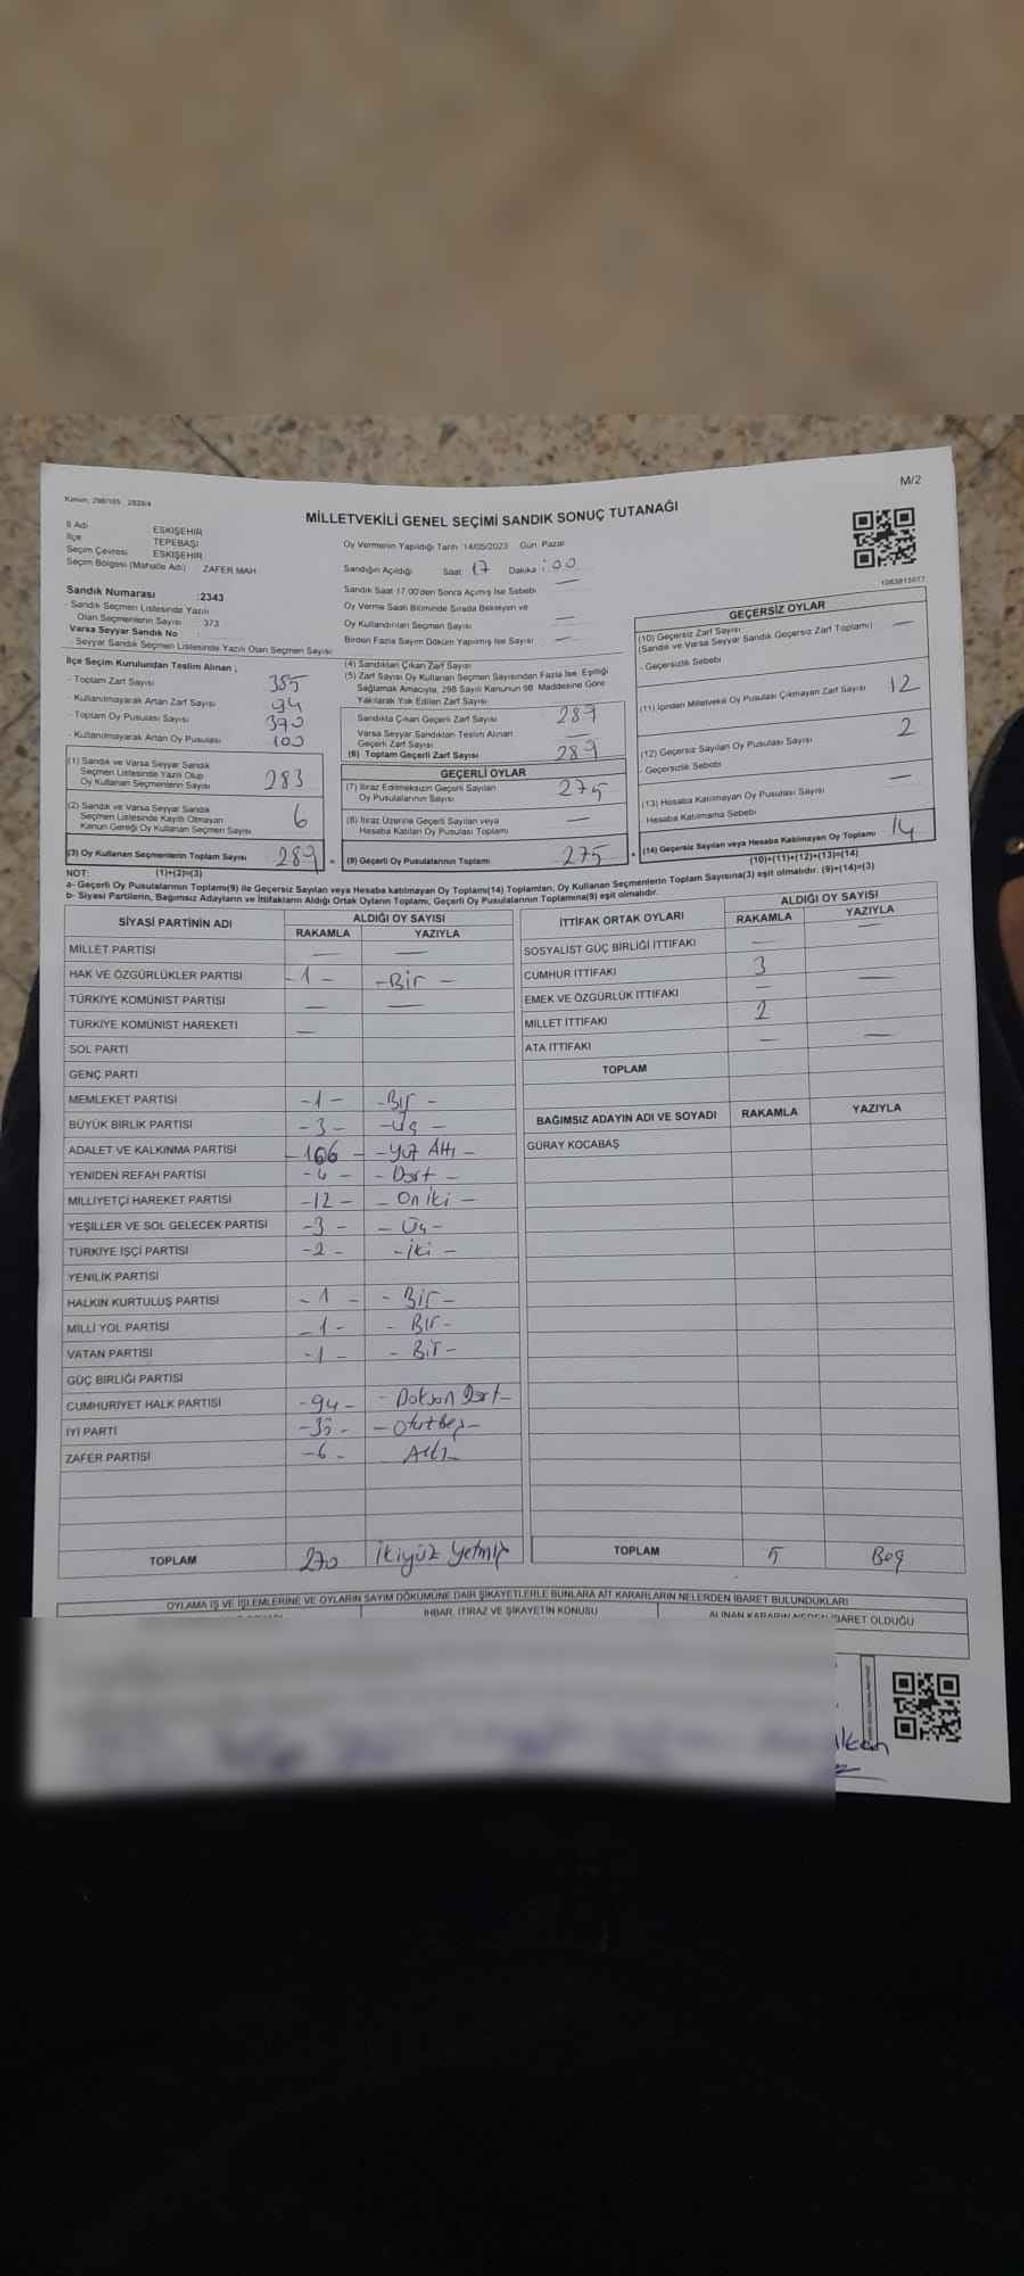 M/2
MİLLETVEKİLİ GENEL SEÇİMİ SANDIK SONUÇ TUTANAĞI
İl Adı ESKİŞEHİR
İlçe TEPEBAŞI
Seçim Çevresi ESKİŞEHİR
Seçim Bölgesi (Mahalle Adı) ZAFER MAH
Oy Vermenin Yapıldığı Tarih 14/05/2023 Gün Pazar
Sandığın Açıldığı Saat 17 Dakika :00
Sandık Saat 17.00'den Sonra Açılmış İse Sebebi —
Oy Verme Saati Bitiminde Sırada Bekleyen ve
Oy Kullandırılan Seçmen Sayısı —
Birden Fazla Sayım Döküm Yapılmış İse Sayısı —
Sandık Numarası :2343
Sandık Seçmen Listesinde Yazılı
Olan Seçmenlerin Sayısı 373
Varsa Seyyar Sandık No
Seyyar Sandık Seçmen Listesinde Yazılı Olan Seçmen Sayısı
İlçe Seçim Kurulundan Teslim Alınan ;
- Toplam Zarf Sayısı 385
- Kullanılmayarak Artan Zarf Sayısı 94
- Toplam Oy Pusulası Sayısı 390
- Kullanılmayarak Artan Oy Pusulası 100
(1) Sandık ve Varsa Seyyar Sandık
Seçmen Listesinde Yazılı Olup
Oy Kullanan Seçmenlerin Sayısı 283
(2) Sandık ve Varsa Seyyar Sandık
Seçmen Listesinde Kayıtlı Olmayan
Kanun Gereği Oy Kullanan Seçmen Sayısı 6
(3) Oy Kullanan Seçmenlerin Toplam Sayısı 289
(1)+(2)=(3)
(4) Sandıktan Çıkan Zarf Sayısı
(5) Zarf Sayısı Oy Kullanan Seçmen Sayısından Fazla İse, Eşitliği
Sağlamak Amacıyla, 298 Sayılı Kanunun 98. Maddesine Göre
Yakılarak Yok Edilen Zarf Sayısı
Sandıkta Çıkan Geçerli Zarf Sayısı 289
Varsa Seyyar Sandıktan Teslim Alınan
Geçerli Zarf Sayısı —
(6) Toplam Geçerli Zarf Sayısı 289
GEÇERLİ OYLAR
(7) İtiraz Edilmeksizin Geçerli Sayılan
Oy Pusulalarının Sayısı 275
(8) İtiraz Üzerine Geçerli Sayılan veya
Hesaba Katılan Oy Pusulası Toplamı —
(9) Geçerli Oy Pusulalarının Toplamı 275
GEÇERSİZ OYLAR
(10) Geçersiz Zarf Sayısı
(Sandık ve Varsa Seyyar Sandık Geçersiz Zarf Toplamı) —
- Geçersizlik Sebebi
(11) İçinden Milletvekili Oy Pusulası Çıkmayan Zarf Sayısı 12
(12) Geçersiz Sayılan Oy Pusulası Sayısı 2
- Geçersizlik Sebebi
(13) Hesaba Katılmayan Oy Pusulası Sayısı —
Hesaba Katılmama Sebebi
(14) Geçersiz Sayılan veya Hesaba Katılmayan Oy Toplamı 14
(10)+(11)+(12)+(13)=(14)
NOT:
a- Geçerli Oy Pusulalarının Toplamı(9) ile Geçersiz Sayılan veya Hesaba katılmayan Oy Toplamı(14) Toplamları, Oy Kullanan Seçmenlerin Toplam Sayısına(3) eşit olmalıdır. (9)+(14)=(3)
b- Siyasi Partilerin, Bağımsız Adayların ve İttifakların Aldığı Ortak Oyların Toplamı, Geçerli Oy Pusulalarının Toplamına(9) eşit olmalıdır.
SİYASİ PARTİNİN ADI ALDIĞI OY SAYISI
RAKAMLA YAZIYLA
MİLLET PARTİSİ — —
HAK VE ÖZGÜRLÜKLER PARTİSİ -1- -Bir-
TÜRKİYE KOMÜNİST PARTİSİ — —
TÜRKİYE KOMÜNİST HAREKETİ —
SOL PARTİ
GENÇ PARTİ
MEMLEKET PARTİSİ -1- -Bir-
BÜYÜK BİRLİK PARTİSİ -3- -Üç-
ADALET VE KALKINMA PARTİSİ -106- -Yüz Altı-
YENİDEN REFAH PARTİSİ -4- -Dört-
MİLLİYETÇİ HAREKET PARTİSİ -12- -On iki-
YEŞİLLER VE SOL GELECEK PARTİSİ -3- -Üç-
TÜRKİYE İŞÇİ PARTİSİ -2- -iki-
YENİLİK PARTİSİ
HALKIN KURTULUŞ PARTİSİ -1- -Bir-
MİLLİ YOL PARTİSİ -1- -Bir-
VATAN PARTİSİ -1- -Bir-
GÜÇ BİRLİĞİ PARTİSİ
CUMHURİYET HALK PARTİSİ -94- -Doksan Dört-
İYİ PARTİ -35- -Otuzbeş-
ZAFER PARTİSİ -6- Altı
TOPLAM 270 ikiyüz yetmiş
İTTİFAK ORTAK OYLARI ALDIĞI OY SAYISI
RAKAMLA YAZIYLA
SOSYALİST GÜÇ BİRLİĞİ İTTİFAKI — —
CUMHUR İTTİFAKI 3
EMEK VE ÖZGÜRLÜK İTTİFAKI — —
MİLLET İTTİFAKI 2
ATA İTTİFAKI — —
TOPLAM
BAĞIMSIZ ADAYIN ADI VE SOYADI RAKAMLA YAZIYLA
GÜRAY KOCABAŞ
TOPLAM 5 Beş
OYLAMA İŞ VE İŞLEMLERİNE VE OYLARIN SAYIM DÖKÜMÜNE DAİR ŞİKAYETLERLE BUNLARA AİT KARARLARIN NELERDEN İBARET BULUNDUKLARI
İHBAR, İTİRAZ VE ŞİKAYETİN KONUSU
ALINAN KARARIN NEDEN İBARET OLDUĞU